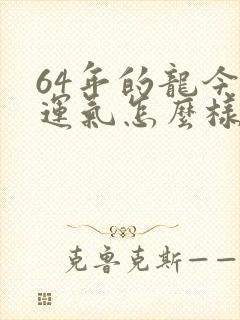 64年的龍今
運氣怎麼樣
克魯克斯——